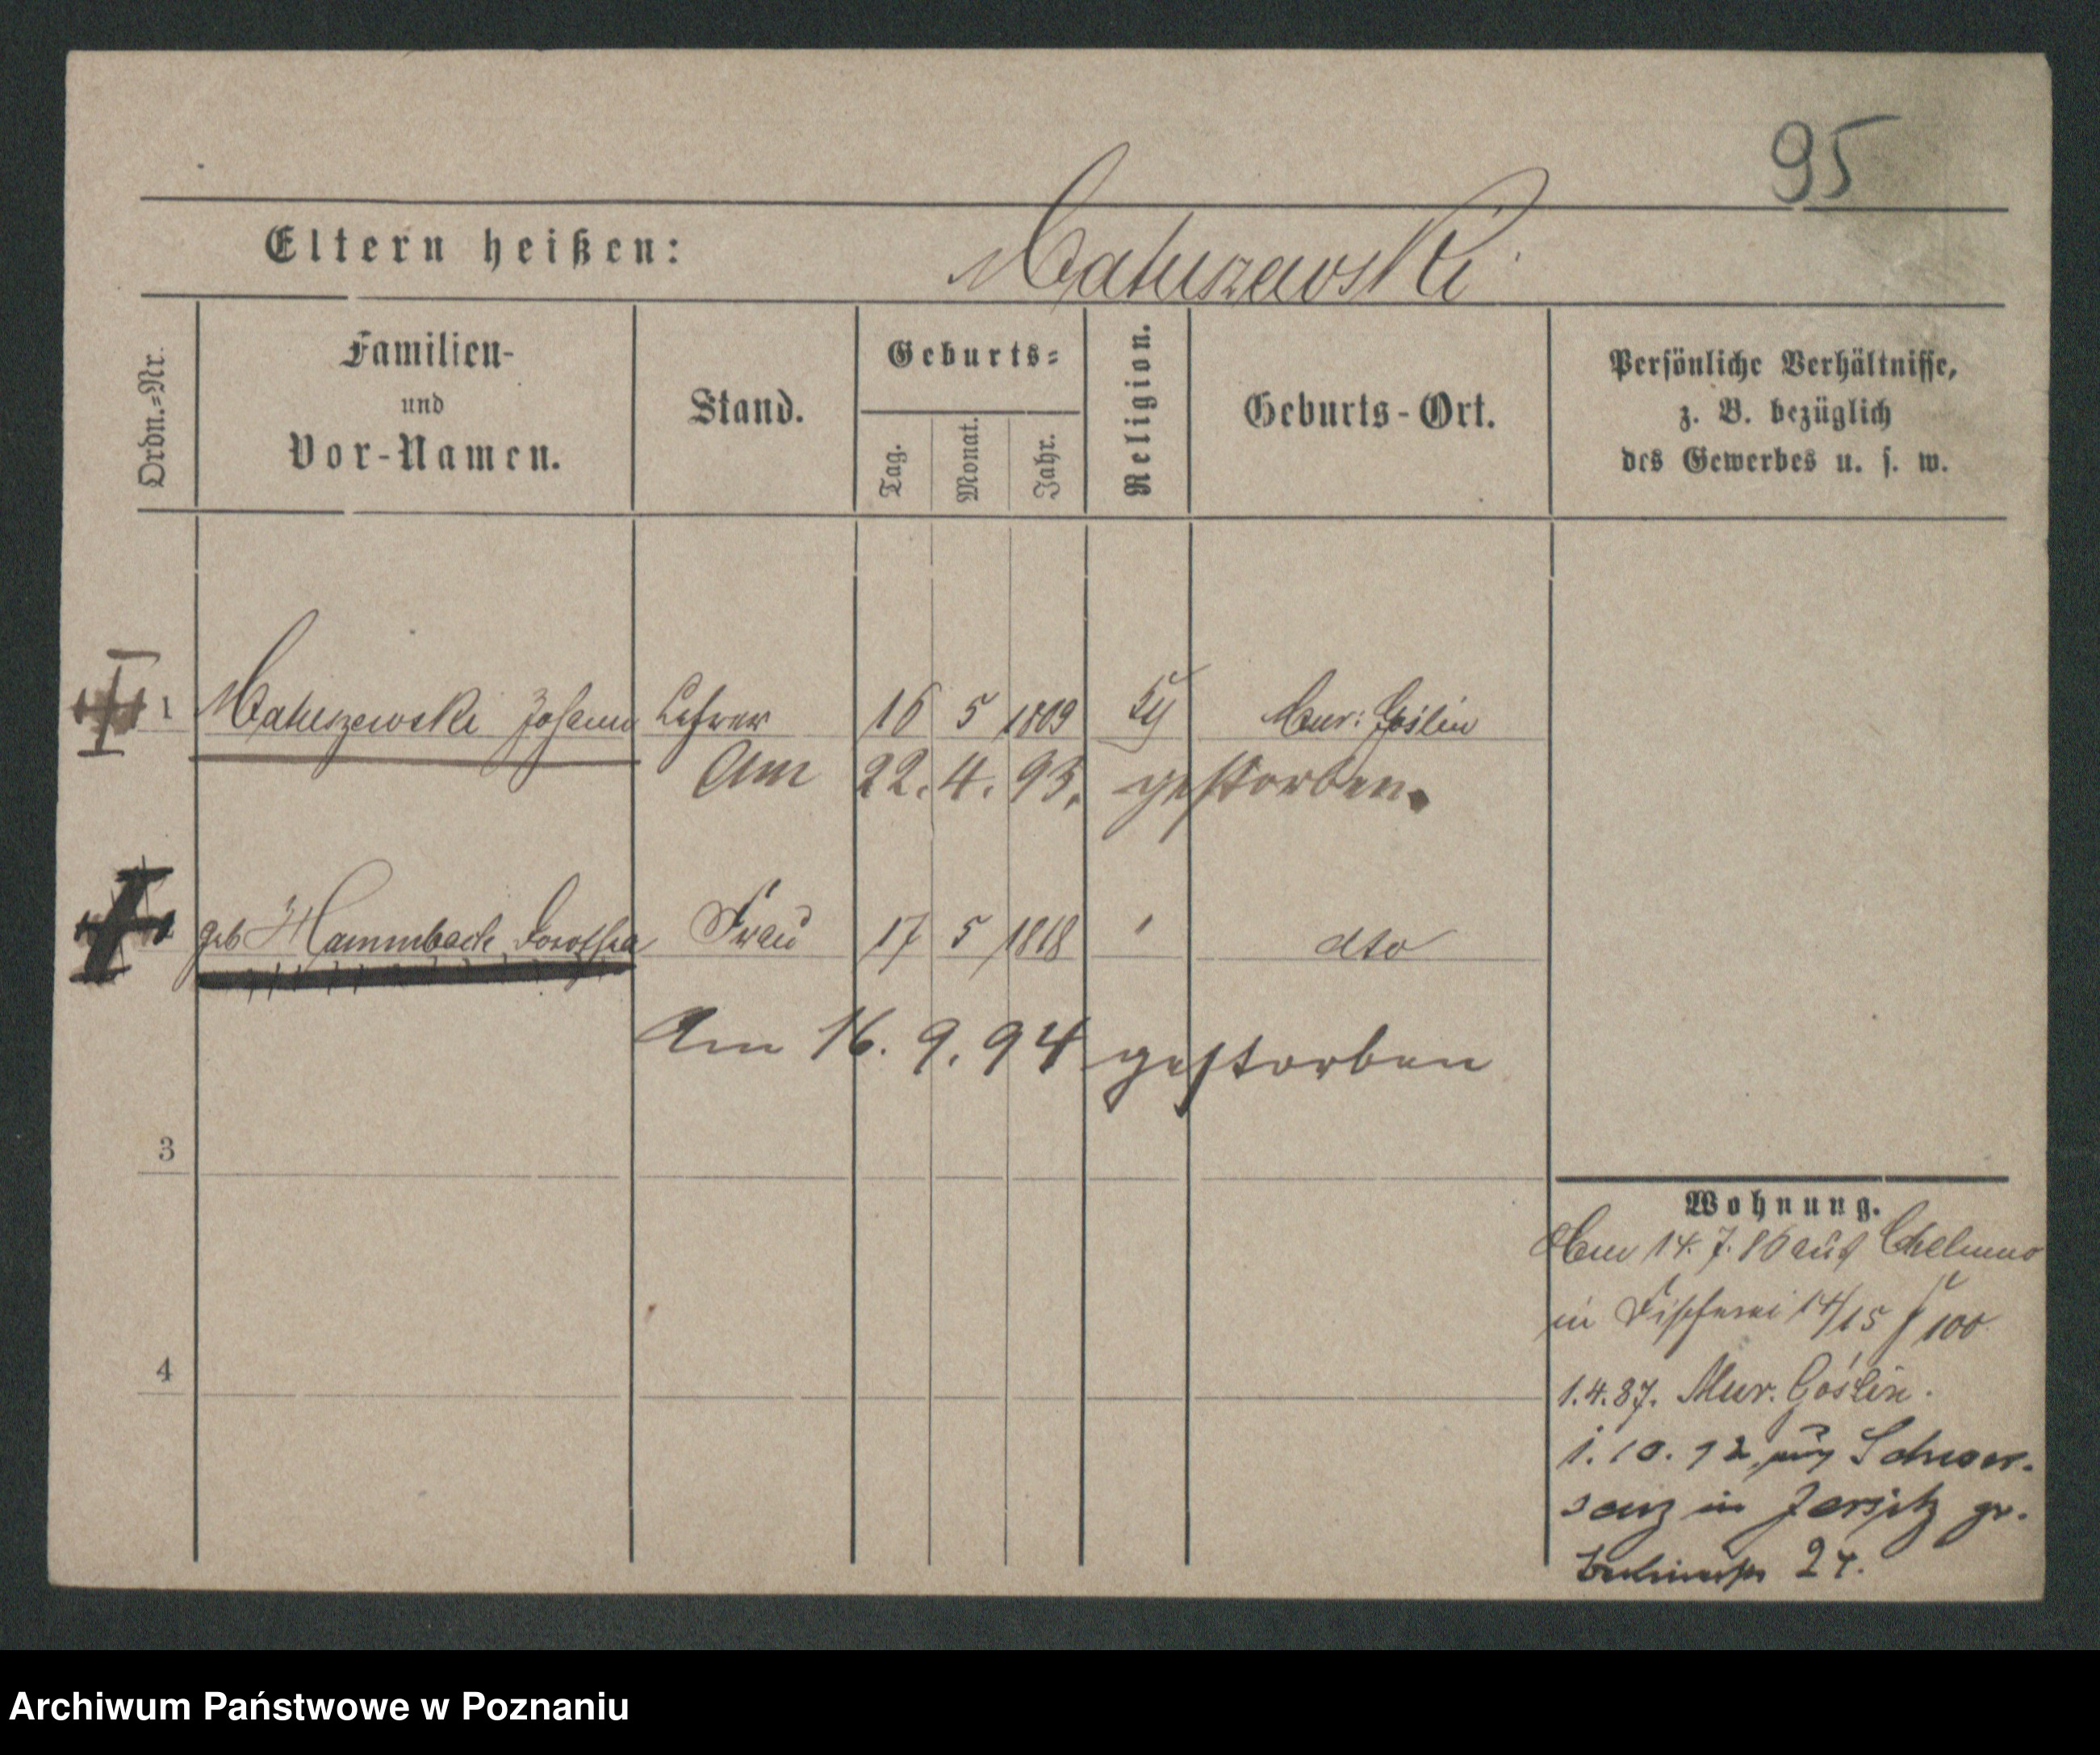 95
Eltern heißen: Matuszewski
Ordn.=Nr.
Familien-
und
Vor-Namen.
Stand.
Geburts=
Tag.
Monat.
Jahr.
Religion.
Geburts-Ort.
Persönliche Verhältnisse,
z. B. bezüglich
des Gewerbes u. s. w.
1 Matuszewski Johann Lehrer 16 5 1809 Mur: Goślin
Am 22. 4. 93. gestorben.
geb Hammbach Dorothea Frau 17 5 1818 " dto
Am 16. 9. 94 gestorben
3
4
Wohnung.
14. 7. 86 aus Chelmno
in Fischerei 14/15 100
1.4.87. Mur. Goślin.
1. 10. 92 aus Schwer-
senz in Jersitz gr.
24.
Archiwum Państwowe w Poznaniu